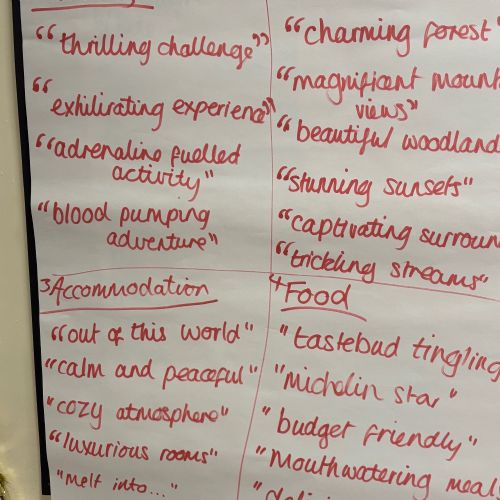 "thrilling challenge"
"exhilirating experience"
"adrenaline fuelled
activity"
"blood pumping
adventure"
"charming forest"
"magnificant mount
views"
"beautiful woodland
"stunning sunsets"
"captivating surroun
"trickling streams"
3 Accommodation
"out of this world"
"calm and peaceful"
"cozy atmosphere"
"luxurious rooms"
"melt into..."
4 Food
"tastebud tingling
"michelin star"
"budget friendly"
"Mouthwatering meal